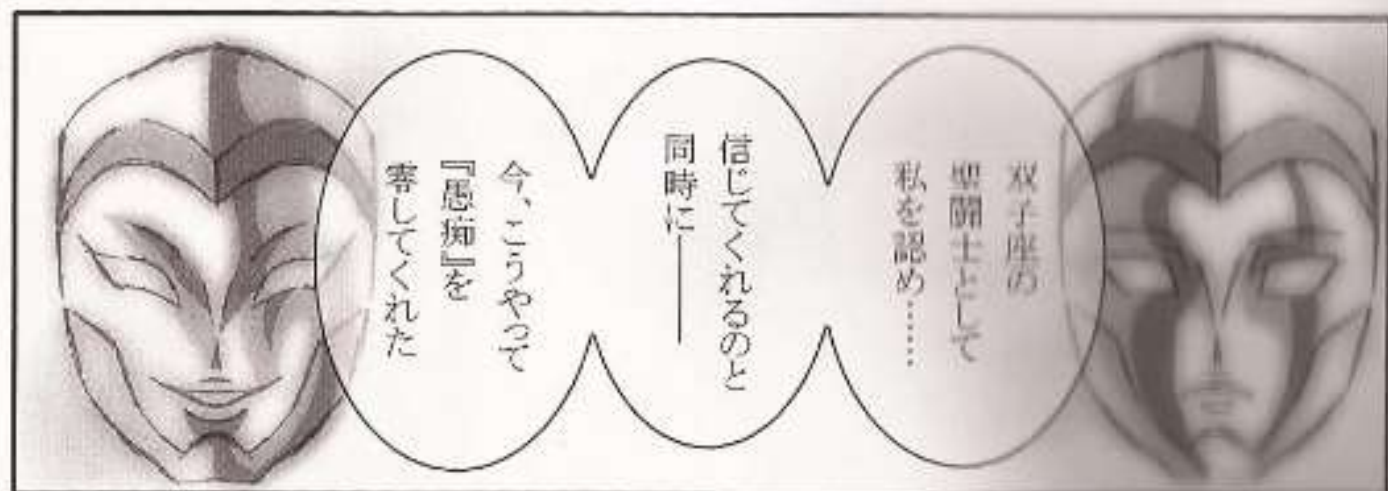 双子座の
聖闘士として
私を認め……
信じてくれるのと
同時に――
今、こうやって
『愚痴』を
零してくれた